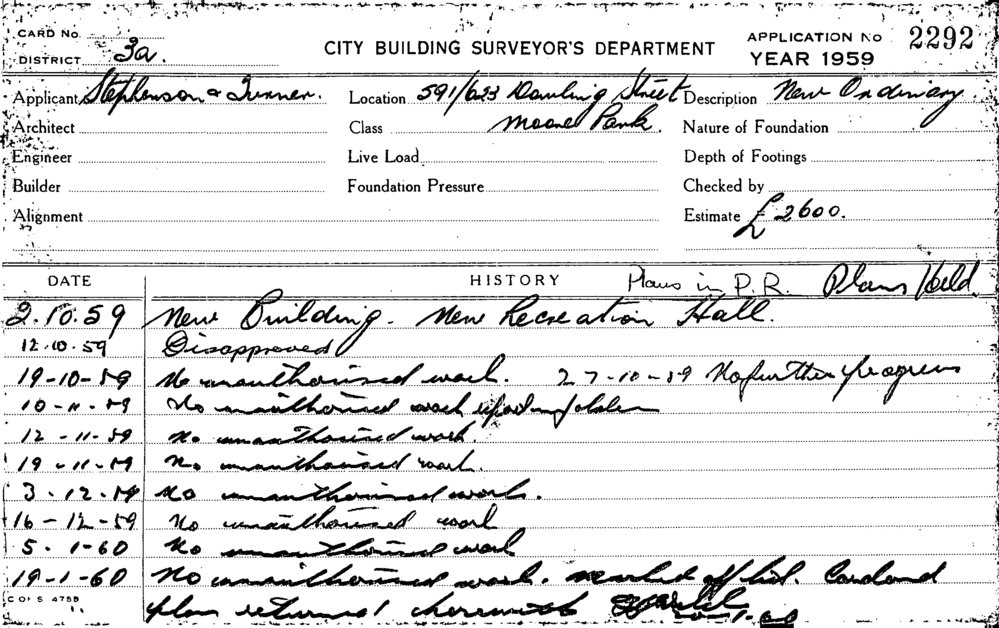 CARD No.
DISTRICT 3a.
CITY BUILDING SURVEYOR'S DEPARTMENT
APPLICATION No 2292
YEAR 1959
Applicant Stephenson & Turner. Location 591/623 Dowling Street Description New Ordinary.
Architect Class Moore Park. Nature of Foundation
Engineer Live Load Depth of Footings
Builder Foundation Pressure Checked by
Alignment Estimate £2600.
DATE HISTORY Plans in P.R. Plans Held.
2.10.59 New Building. New Recreation Hall.
12.10.59 Disapproved
19-10-59 No unauthorised work. 27-10-59 No further progress
10-11-59 No unauthorised work
12-11-59 No unauthorised work.
19-11-59 No unauthorised work.
3-12-59 No unauthorised work.
16-12-59 No unauthorised work
5-1-60 No unauthorised work
19-1-60 No unauthorised work. marked off list. Card and
C OF S 475B plan returned herewith